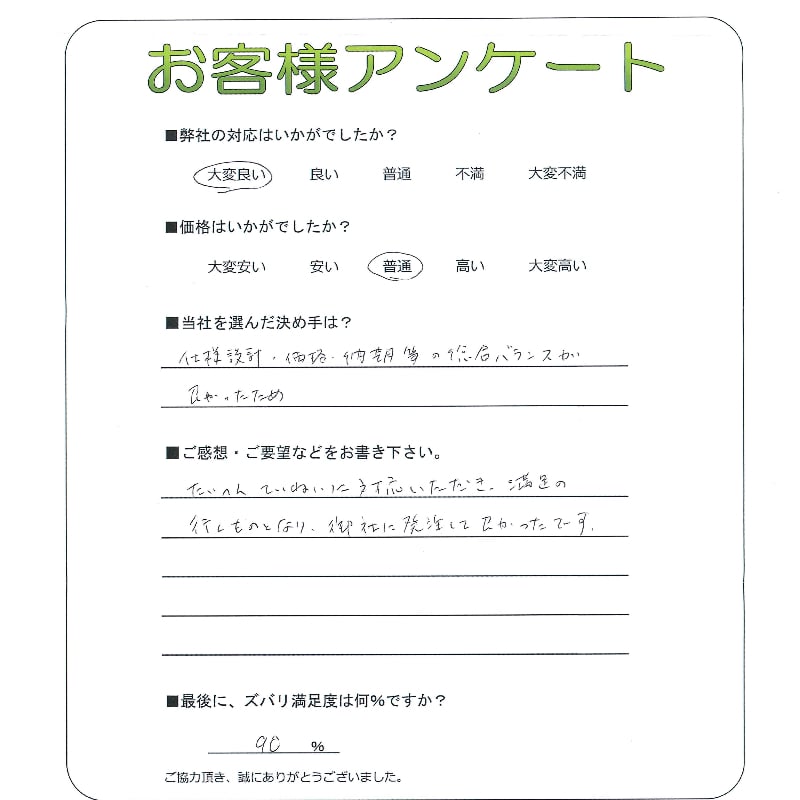 お客様アンケート
■弊社の対応はいかがでしたか？
大変良い 良い 普通 不満 大変不満
■価格はいかがでしたか？
大変安い 安い 普通 高い 大変高い
■当社を選んだ決め手は？
仕様設計・価格・納期等の総合バランスが
良かったため
■ご感想・ご要望などをお書き下さい。
たいへんていねいに対応いただき、満足の
行くものとなり、御社に発注して良かったです。
■最後に、ズバリ満足度は何%ですか？
90 %
ご協力頂き、誠にありがとうございました。